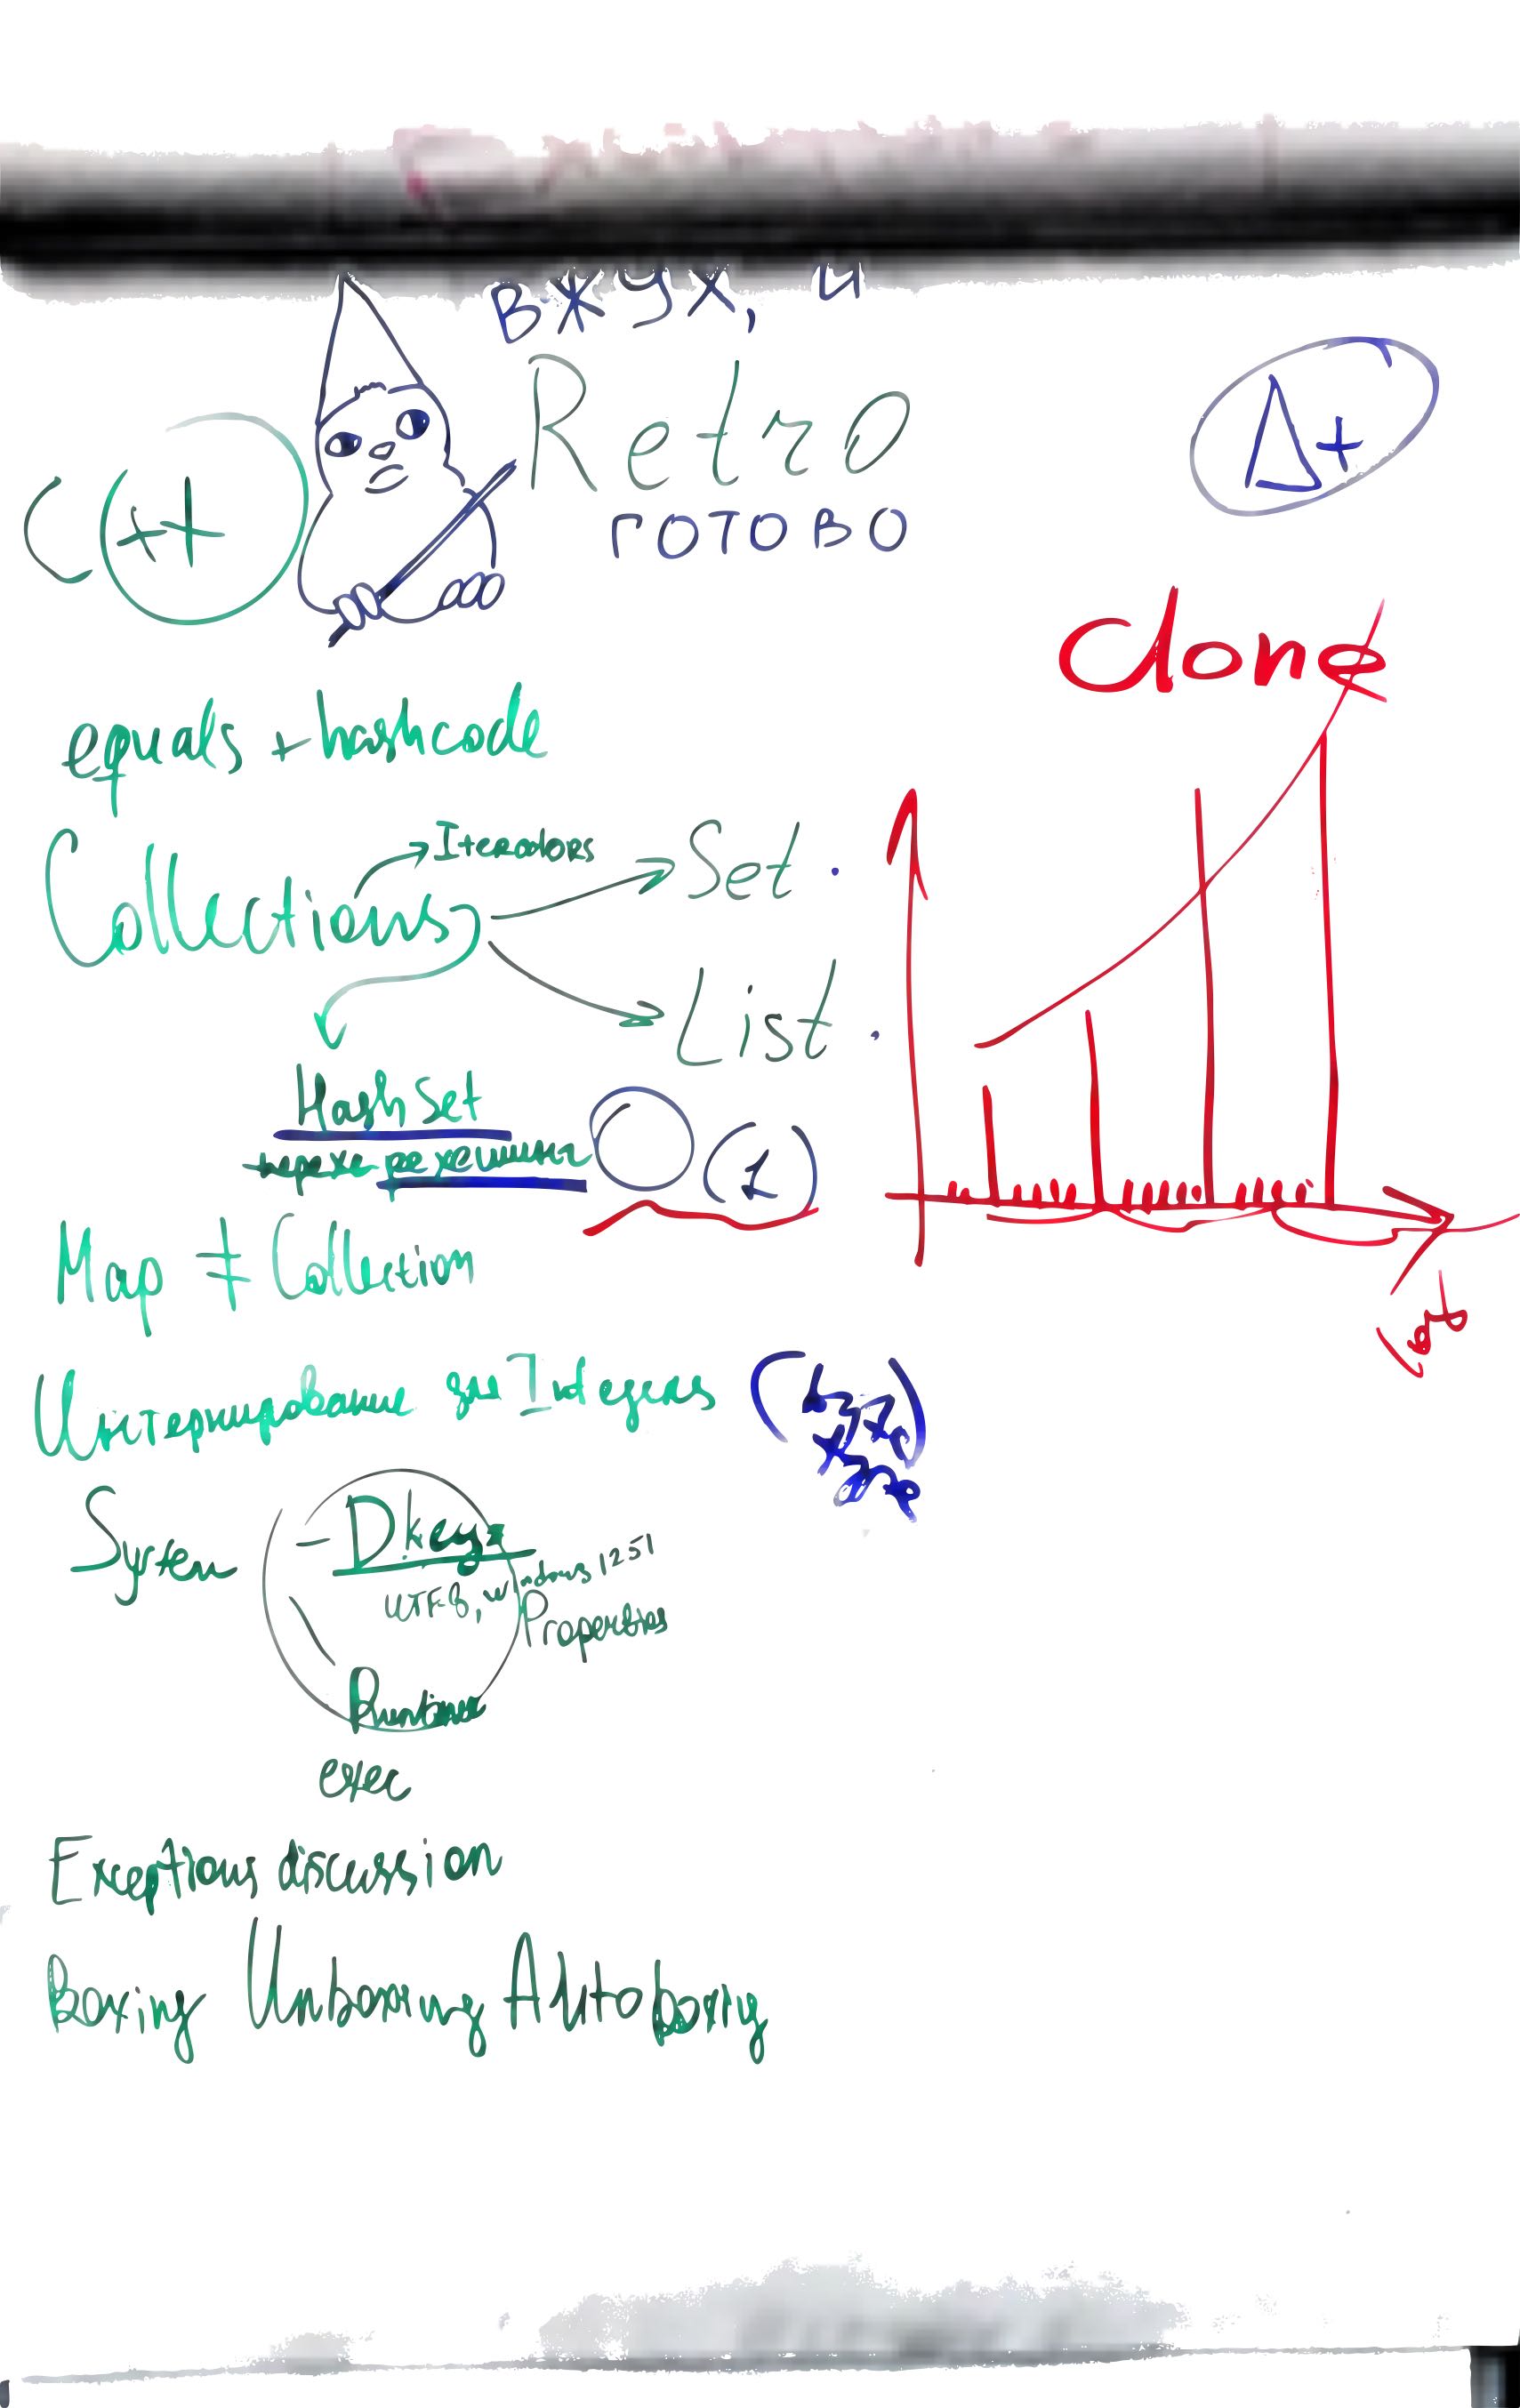 вжух, и
Retro
готово
C++
Δ+
done
equals + hashcode
Collections
Iterators
Set
List
HashSet
O(1)
Map ≠ Collection
Интернирование для Integer
System
-Dkey=
UTF-8, windows 1251
Properties
Runtime
exec
Exceptions discussion
Boxing Unboxing Autoboxing